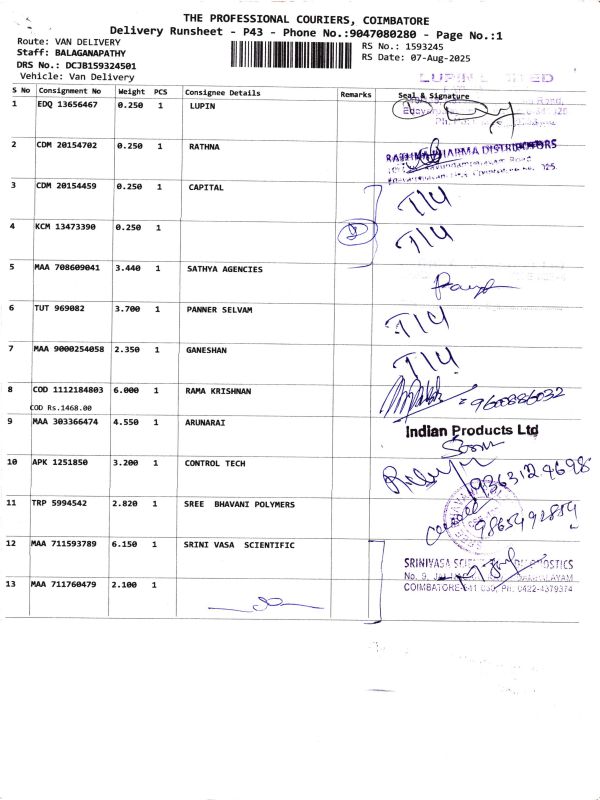 THE PROFESSIONAL COURIERS, COIMBATORE
Delivery Runsheet - P43 - Phone No.:9047080280 - Page No.:1
Route: VAN DELIVERY
Staff: BALAGANAPATHY
DRS No.: DCJB159324501
Vehicle: Van Delivery
RS No.: 1593245
RS Date: 07-Aug-2025
S No Consignment No Weight PCS Consignee Details Remarks Seal & Signature
1 EDQ 13656467 0.250 1 LUPIN
2 CDM 20154702 0.250 1 RATHNA
RATHNA PHARMA DISTRIBUTORS
3 CDM 20154459 0.250 1 CAPITAL T/U
4 KCM 13473390 0.250 1 T/U
5 MAA 708609041 3.440 1 SATHYA AGENCIES
6 TUT 969082 3.700 1 PANNER SELVAM T/U
7 MAA 9000254058 2.350 1 GANESHAN T/U
8 COD 1112184803 6.000 1 RAMA KRISHNAN 9600886032
COD Rs.1468.00
9 MAA 303366474 4.550 1 ARUNARAI Indian Products Ltd
10 APK 1251850 3.200 1 CONTROL TECH 9363124698
11 TRP 5994542 2.820 1 SREE BHAVANI POLYMERS 9865492884
12 MAA 711593789 6.150 1 SRINI VASA SCIENTIFIC
SRINIVASA
No. 9,
COIMBATORE-641 030, Ph: 0422-4379374
13 MAA 711760479 2.100 1